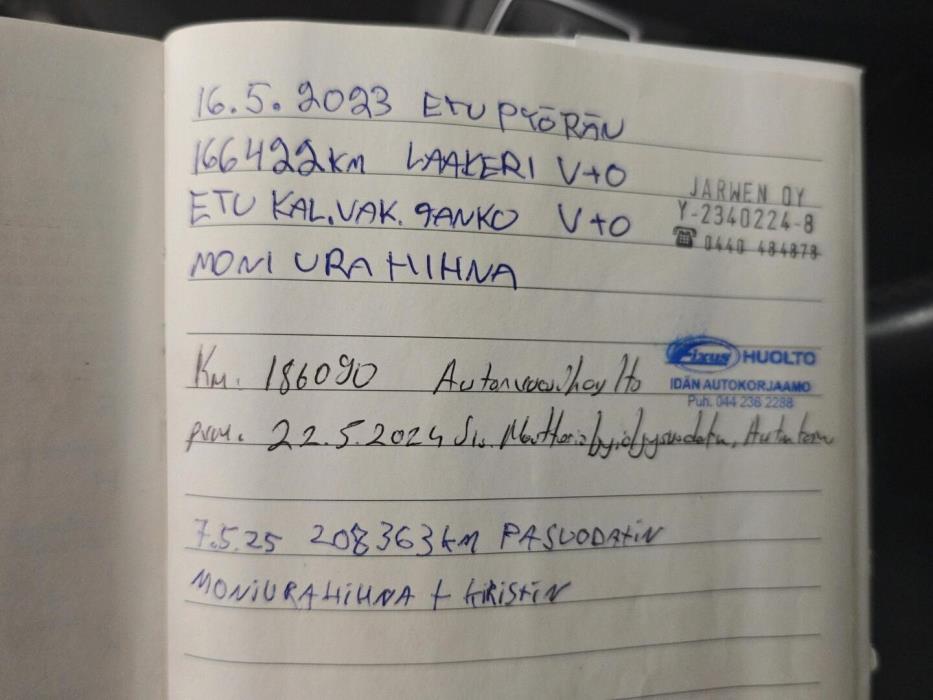 16.5.2023 ETUPYÖRÄN
166422KM LAAKERI V+O
ETU KAL.VAK. TANKO V+O
MONI URA HIHNA
JARWEN OY
Y-2340224-8
☎ 0440 484878
Km. 186090 Auton
Fixus HUOLTO
IDÄN AUTOKORJAAMO
Puh. 044 236 2288
pvm. 22.5.2024 Sis.
7.5.25 208363KM PASUODATIN
MONIURAHIHNA + KIRISTIN